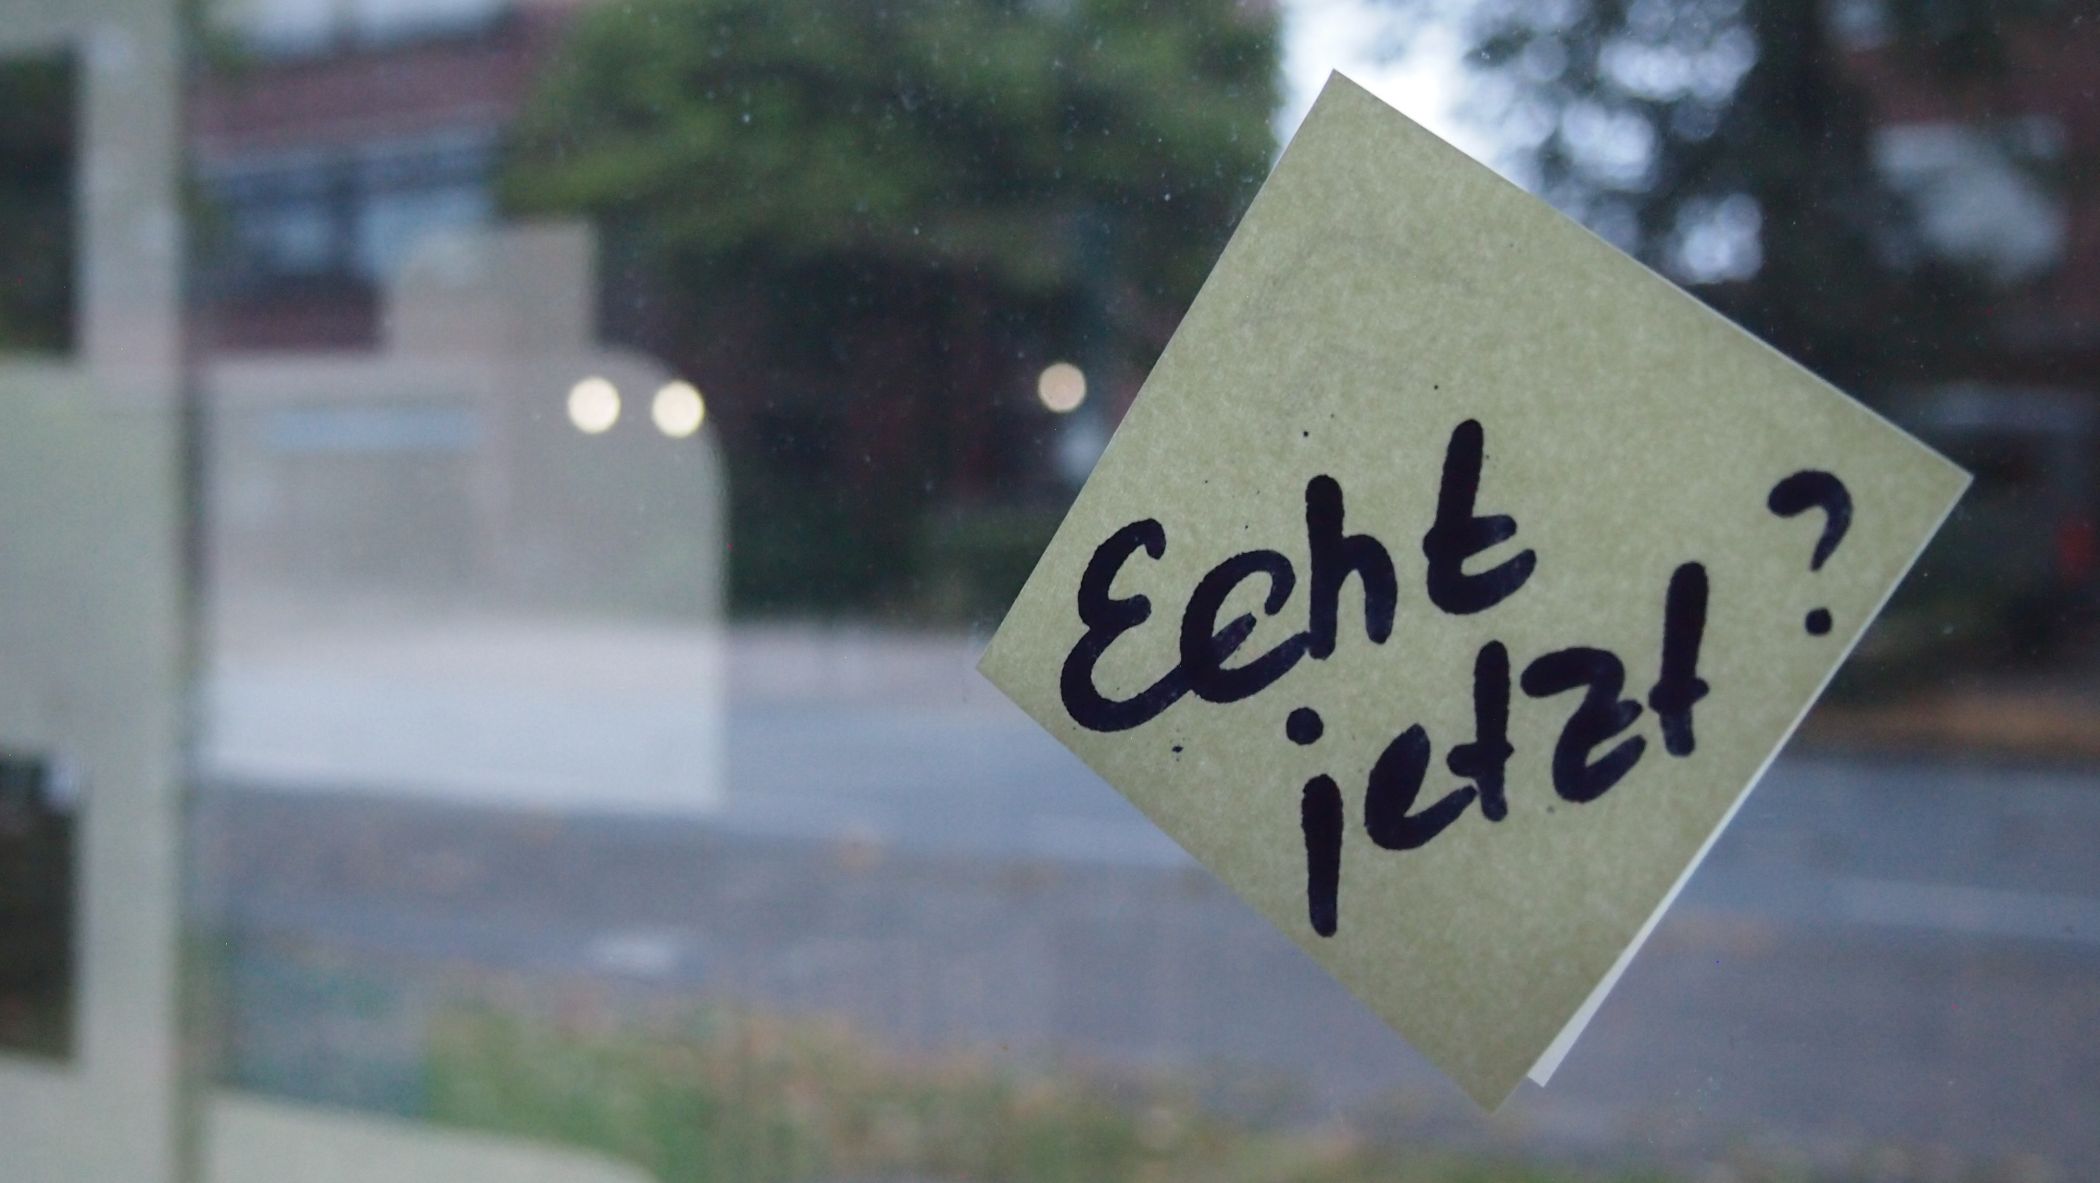 Echt
jetzt?